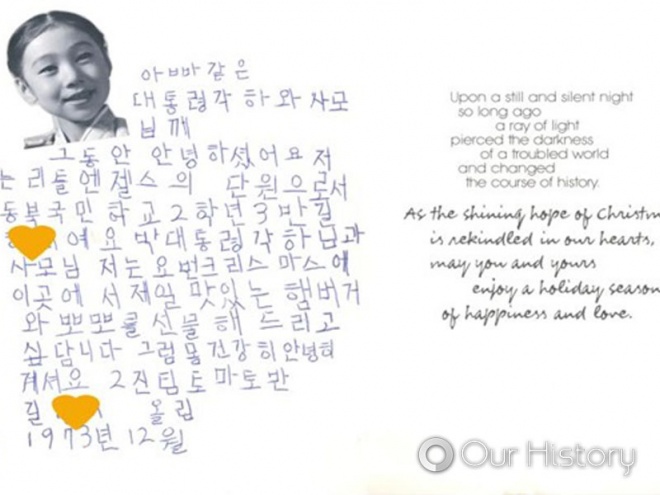 아빠같은
대통령각 하 와 사모
님께
그동안 안녕하셨어요 저
는 리틀엔젤스의 단원으로서
동북국민 하교 2학년 3반 길
여요 박대통령각 하님과
사모님 저는 요번크리스 마스에
이곳에 서 제일 맛있는 햄버거
와 뽀뽀를 선물 해 드리고
싶답니다 그럼 몸건강히 안녕히
계셔요 2진팀 토마토반
길 올림
1973년 12월
Upon a still and silent night
so long ago
a ray of light
pierced the darkness
of a troubled world
and changed
the course of history.
As the shining hope of Christm
is rekindled in our hearts,
may you and yours
enjoy a holiday season
of happiness and love.
Our History